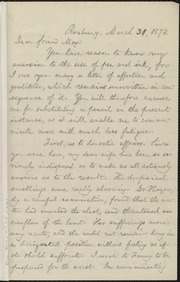 Roxbury, March 30, 1873.
Dear friend May:
You have reason to know my
aversion to the use of pen and ink, for
I owe you many a letter of affection and
gratitude, which remains unwritten in con-
sequence of it. You will therefore excuse
me for substituting a pencil in the present
instance, as it will enable me to commu-
nicate more with much less fatigue.
First, as to domestic affairs. Since
you were here, my dear wife has been so ex-
tremely indisposed as to make us all extremely
anxious as to the result. Her dropsical
swellings were really alarming. Dr. Geyer,
by a careful examination, found that the wa-
ter had invaded the chest, and threatened an
overflow of the heart. Her sufferings were
very acute, and she could not remain long in
a horizontal position without feeling as if
she should suffocate. I wrote to Fanny to be
prepared for the worst. On communicating